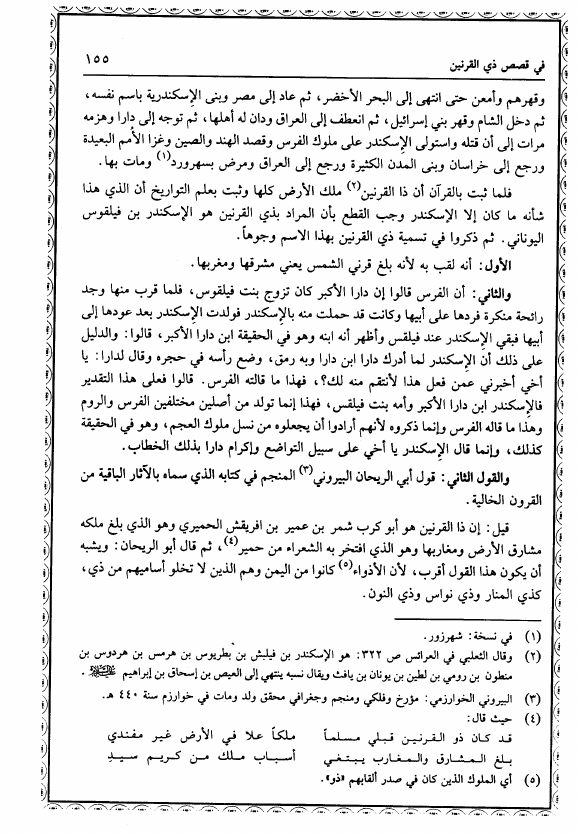 في قصص ذي القرنين
١٥٥
وقهرهم وأمعن حتى انتهى إلى البحر الأخضر، ثم عاد إلى مصر وبنى الإسكندرية باسم نفسه،
ثم دخل الشام وقهر بني إسرائيل، ثم انعطف إلى العراق ودان له أهلها، ثم توجه إلى دارا وهزمه
مرات إلى أن قتله واستولى الإسكندر على ملوك الفرس وقصد الهند والصين وغزا الأمم البعيدة
ورجع إلى خراسان وبنى المدن الكثيرة ورجع إلى العراق ومرض بسهرورد(١) ومات بها.
فلما ثبت بالقرآن أن ذا القرنين(٢) ملك الأرض كلها وثبت بعلم التواريخ أن الذي هذا
شأنه ما كان إلا الإسكندر وجب القطع بأن المراد بذي القرنين هو الإسكندر بن فيلقوس
اليوناني. ثم ذكروا في تسمية ذي القرنين بهذا الاسم وجوهاً.
الأول: أنه لقب به لأنه بلغ قرني الشمس يعني مشرقها ومغربها.
والثاني: أن الفرس قالوا إن دارا الأكبر كان تزوج بنت فيلقوس، فلما قرب منها وجد
رائحة منكرة فردها على أبيها وكانت قد حملت منه بالإسكندر فولدت الإسكندر بعد عودها إلى
أبيها فبقي الإسكندر عند فيلقس وأظهر أنه ابنه وهو في الحقيقة ابن دارا الأكبر، قالوا: والدليل
على ذلك أن الإسكندر لما أدرك دارا ابن دارا وبه رمق، وضع رأسه في حجره وقال لدارا: يا
أخي أخبرني عمن فعل هذا لأنتقم منه لك؟، فهذا ما قالته الفرس. قالوا فعلى هذا التقدير
فالإسكندر ابن دارا الأكبر وأمه بنت فيلقس، فهذا إنما تولد من أصلين مختلفين الفرس والروم
وهذا ما قاله الفرس وإنما ذكروه لأنهم أرادوا أن يجعلوه من نسل ملوك العجم، وهو في الحقيقة
كذلك، وإنما قال الإسكندر يا أخي على سبيل التواضع وإكرام دارا بذلك الخطاب.
والقول الثاني: قول أبي الريحان البيروني(٣) المنجم في كتابه الذي سماه بالآثار الباقية من
القرون الخالية.
قيل: إن ذا القرنين هو أبو كرب شمر بن عمير بن افريقش الحميري وهو الذي بلغ ملكه
مشارق الأرض ومغاربها وهو الذي افتخر به الشعراء من حمير(٤)، ثم قال أبو الريحان: ويشبه
أن يكون هذا القول أقرب، لأن الأذواء(٥) كانوا من اليمن وهم الذين لا تخلو أساميهم من ذي،
كذي المنار وذي نواس وذي النون.
(١) في نسخة: شهرزور.
(٢) وقال الثعلبي في العرائس ص ٣٢٢: هو الإسكندر بن فيلبش بن بطريوس بن هرمس بن هردوس بن
منطون بن رومي بن لطين بن يونان بن يافث ويقال نسبه ينتهي إلى العيص بن إسحاق بن إبراهيم .
(٣) البيروني الخوارزمي: مؤرخ وفلكي ومنجم وجغرافي محقق ولد ومات في خوارزم سنة ٤٤٠ هـ.
(٤) حيث قال:
قد كان ذو القرنين قبلي مسلماً ملكاً علا في الأرض غير مفندي
بلغ المشارق والمغارب يبتغي أسباب ملك من كريم سيد
(٥) أي الملوك الذين كان في صدر ألقابهم «ذو».